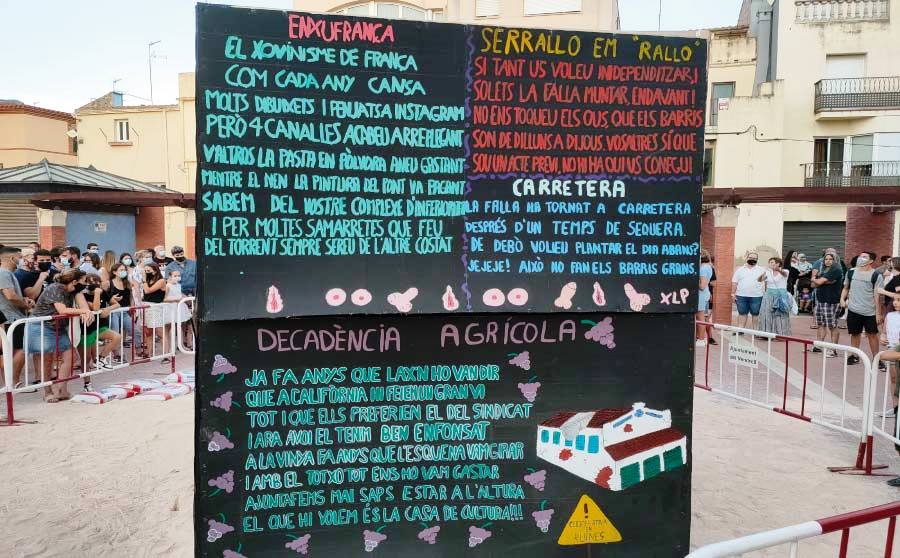 ENXUFRANÇA
EL XOVINISME DE FRANÇA
COM CADA ANY CANSA
MOLTS DIBUIXETS I FENUATSA INSTAGRAM
PERÒ 4 CANALLES ACABEU ARREPLEGANT
VALTROS LA PASTA EN PÒLVORA ANEU GASTANT
MENTRE EL NEN LA PINTURA DEL PONT VA PAGANT
SABEM DEL VOSTRE COMPLEXE D'INFERIORITAT
I PER MOLTES SAMARRETES QUE FEU
DEL TORRENT SEMPRE SEREU DE L'ALTRE COSTAT
SERRALLO EM "RALLO"
SI TANT US VOLEU INDEPENDITZAR,
SOLETS LA FALLA MUNTAR, ENDAVANT!
NO ENS TOQUEU ELS OUS, QUE ELS BARRIS
SON DE DILLUNS A DIJOUS, VOSALTRES SÍ QUE
SOU UN ACTE PREVI, NO HI HA QUI US CONEGUI
CARRETERA
LA FALLA HA TORNAT A CARRETERA
DESPRÉS D'UN TEMPS DE SEQUERA.
DE DEBÒ VOLIEU PLANTAR EL DIA ABANS?
JEJEJE! AIXÒ NO FAN ELS BARRIS GRANS.
XLP
DECADÈNCIA AGRÍCOLA
JA FA ANYS QUE LAXN HO VAN DIR
QUE A CALIFÒRNIA HI FEIEN UN GRAN VI
TOT I QUE ELLS PREFERIEN EL DEL SINDICAT
I ARA AVUI EL TENIM BEN ENFONSAT
A LA VINYA FA ANYS QUE L'ESQUENA VAM GIRAR
I AMB EL TOTXO TOT ENS HO VAM GASTAR
AJUNTAFEMS MAI SAPS ESTAR A L'ALTURA
EL QUE HI VOLEM ÉS LA CASA DE CULTURA!!!
!
COOPERATIVA
EN
RUÏNES
Ajuntament
del Vendrell